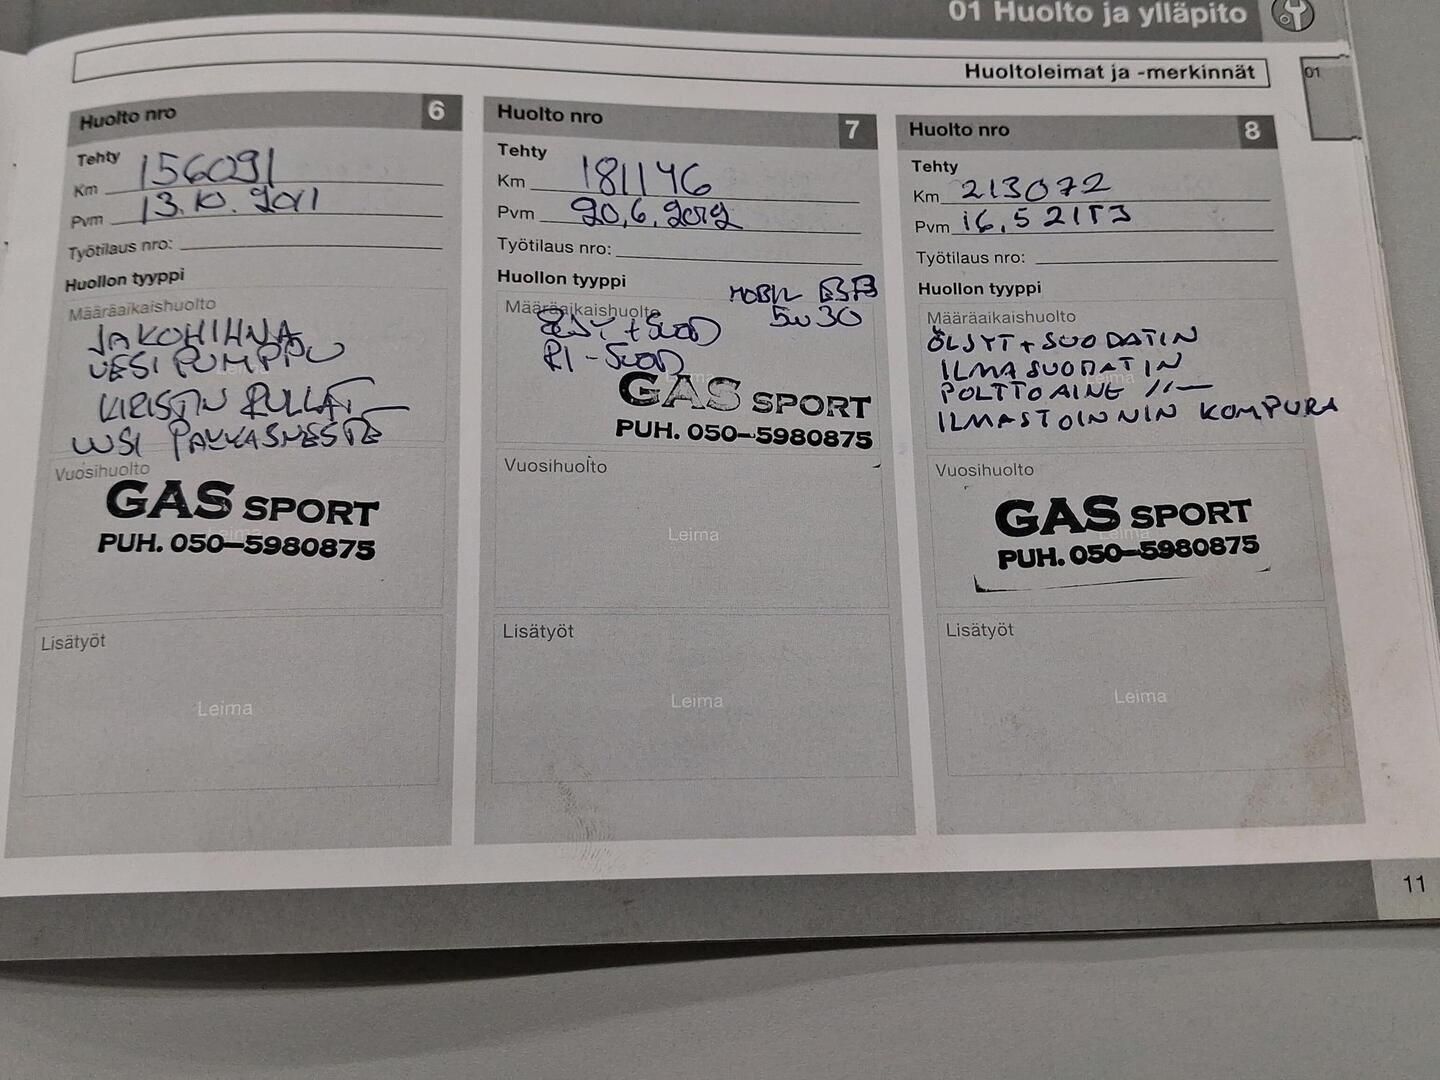 01 Huolto ja ylläpito
Huoltoleimat ja -merkinnät
01
Huolto nro 6
Tehty
Km 156091
Pvm 13.10.2011
Työtilaus nro:
Huollon tyyppi
Määräaikaishuolto
JAKOHIHNA
VESI PUMPPU
KIRISTIN RULLAT
UUSI PAKKASNESTE
Vuosihuolto
GAS SPORT
PUH. 050-5980875
Lisätyöt
Leima
Huolto nro 7
Tehty
Km 181146
Pvm 20.6.2012
Työtilaus nro:
Huollon tyyppi
MOBIL ESP
Määräaikaishuolto
5W30
ÖLJY + SUOD
RI-SUOD
GAS SPORT
PUH. 050-5980875
Vuosihuolto
Leima
Lisätyöt
Leima
Huolto nro 8
Tehty
Km 213072
Pvm 16.5
Työtilaus nro:
Huollon tyyppi
Määräaikaishuolto
ÖLJYT + SUODATIN
ILMASUODATIN
POLTTOAINE -//-
ILMASTOINNIN KOMPURA
Vuosihuolto
GAS SPORT
PUH. 050-5980875
Lisätyöt
Leima
11